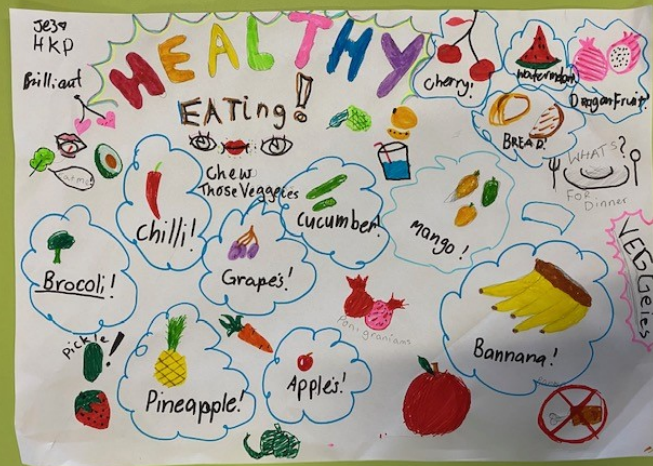 JeJa
HKP
Brilliant
HEALTHY
EATing!
Chew
Those Veggeies
Cherry!
watermelon!
DragonFruit!
BREAD!
WHAT'S?
FOR
Dinner
eat me
Chilli!
Cucumber!
Mango!
Grape's!
Brocoli!
VEGGeies
Pomigraniams
Bannana!
Pickle!
Pineapple!
Apple's!